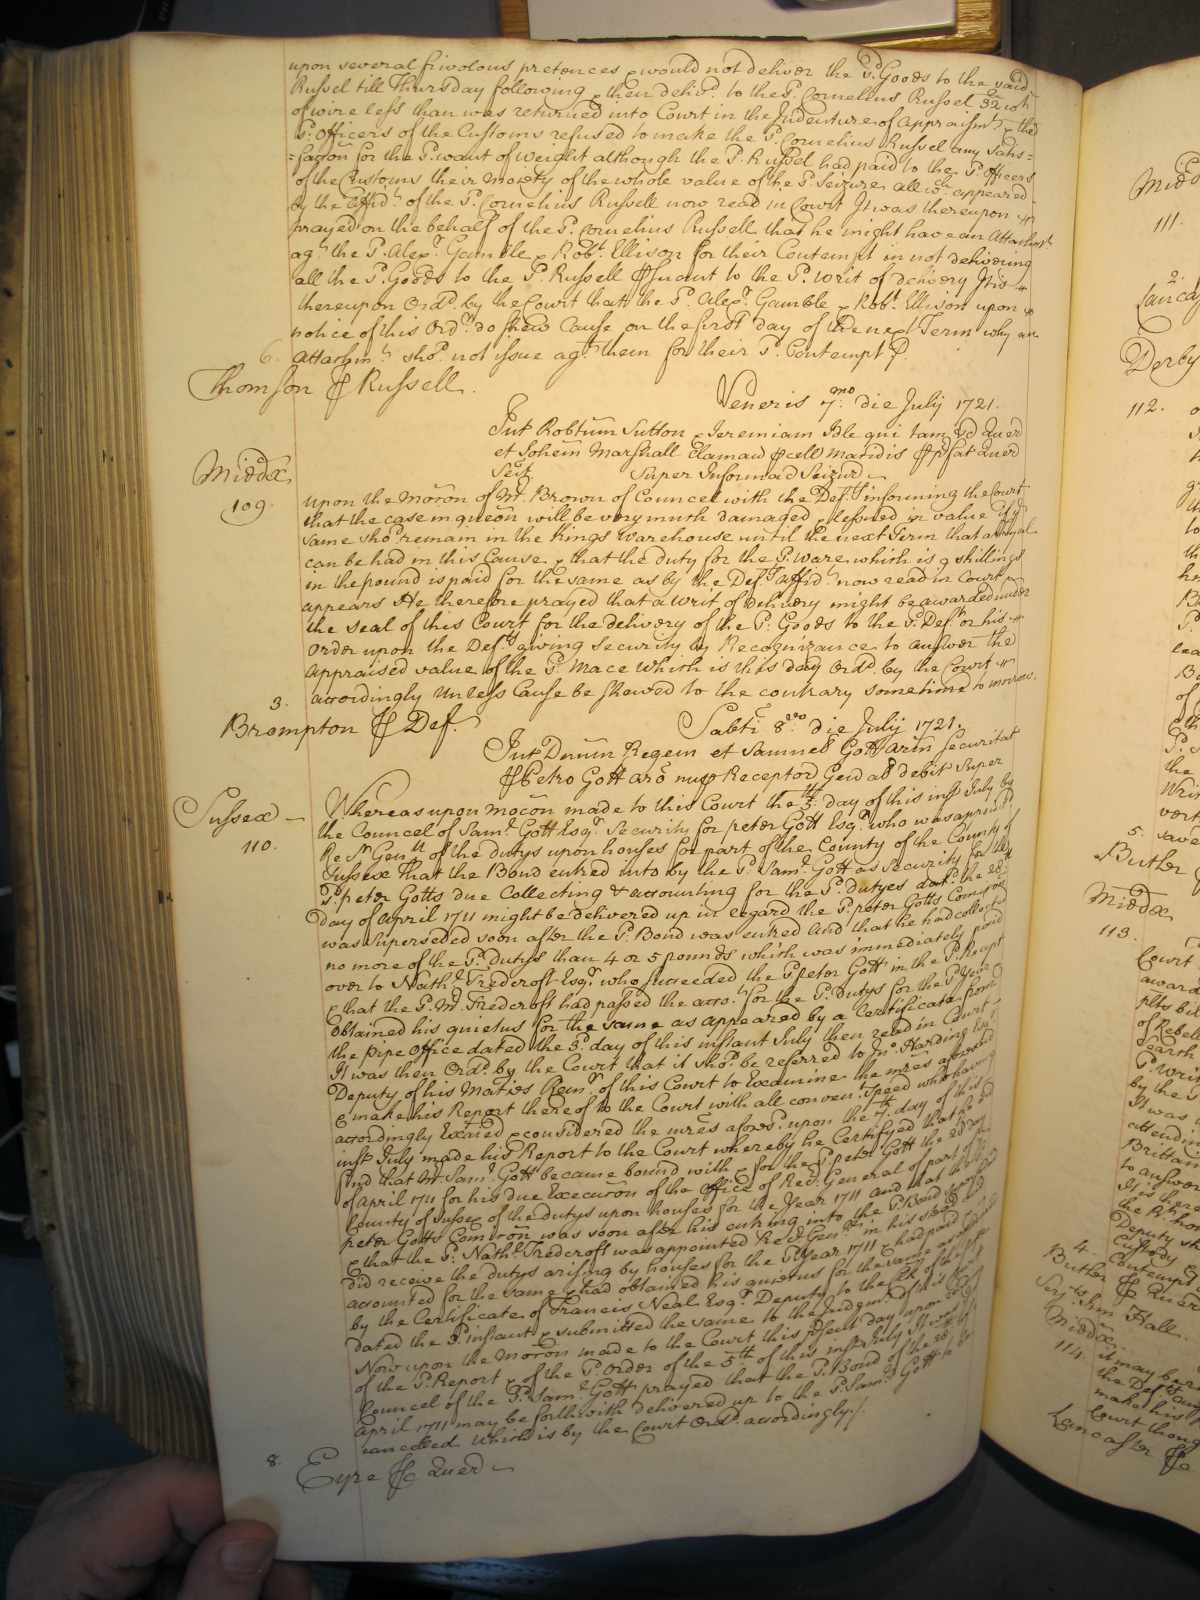 upon several frivolous pretences & would not deliver the sd. Goods to the said
Russel till Thursday following & then delivd. to the sd. Cornelius Russel 32 wt.
of wire less than was returned into Court in the Indenture of Appraismt. & the
sd. Officers of the Customs refused to make the sd. Cornelius Russel any Satis=
=facon for the sd. want of Weight although the sd. Russel had paid to the sd. Officers
of the Customs their Moiety of the whole value of the sd. Seizure all wch. appeared
by the Affidt. of the sd. Cornelius Russell now read in Court It was thereupon
prayed on the behalf of the sd. Cornelius Russell that he might have an Attachmt.
agt. the sd. Alexr. Gamble & Robt. Ellison for their Contempt in not delivering
all the sd. Goods to the sd. Russell psuant to the sd. Writ of delivery It is
thereupon Ordd. by the Court that the sd. Alexr. Gamble & Robt. Ellison upon
notice of this Ordr. do shew Cause on the first day of the next Term why an
Attachmt. shod. not issue agt. them for their sd. Contempt p.
6.
Thomson p Russell.
Veneris 7mo. die July 1721.
Int Robtum Sutton & Jeremiam Ible qui tam &c Quer
et Johem Marshall Clamand pcell maridis p psat Quer
Seit Super Informacd Seizur
Middx
109.
upon the Mocon of Mr. Brown of Councel with the Deft. informing the Court
that the case in queon will be very much damaged & lessned in value if ye
same shod. remain in the Kings Warehouse until the next Term that a tryal
can be had in this Cause & that the duty for the sd. Ware which is 9 shillings
in the pound is paid for the same as by the Defts. Affidt. now read in Court
appears He therefore prayed that a Writ of delivery might be awarded under
the Seal of this Court for the delivery of the sd. Goods to the sd. Deft. or his
Order upon the Deft. giving Security by Recognizance to answer the
Appraised value of the sd. Mace Which is this day Ordd. by the Court
accordingly Unless Cause be shewed to the contrary sometime to morrow.
3.
Brompton p Def.
Sabti 8vo. die July 1721.
Int Dnum Regem et Samuel Gott arm Securitat
p Petro Gott aro nup Receptor Genl ad debit Super
Sussex
110.
Whereas upon mocon made to this Court the 5th. day of this inst July by
the Councel of Saml. Gott Esqr. Security for peter Gott Esqr. who was appointd
Recr. Genll of the dutys upon houses for part of the County of the County of
Sussex that the Bond entred into by the sd. Saml. Gott as Security for the
sd. peter Gotts due Collecting & accounting for the sd. Dutyes dat. the 28th
day of April 1711 might be delivered up in regard the sd. peter Gotts Comicon
was Superseded soon after the sd. Bond was entred and that he had collected
no more of the sd. Dutys than 4 or 5 pounds which was immediately paid
over to Nathl. Tredcroft Esqr. who succeeded the sd. peter Gott in the sd. Receipt
& that the sd. Mr. Tredcroft had passed the acco.t for the sd. Dutys for the sd. Year &
Obtained his quietus for the same as appeared by a Certificate from
the pipe Office dated the 3d. day of this instant July then read in Court
It was then Ordd. by the Court that it shod. be referred to Jno. Harding Esqr.
Deputy of his Maties Remr. of this Court to Examine the mres aforesd
& make his Report thereof to the Court with all convent. Speed who having
accordingly Exaied & considered the mres afores. upon the 7th. day of this
inst July made his Report to the Court whereby he Certifyed that he did
find that Mr. Saml. Gott became bound with & for the sd. peter Gott the 28 day
of April 1711 for his due Execucon of the Office of Recr. General of part of the
County of Sussex of the dutys upon houses for the Year 1711 and that the sd
peter Gotts Comicon was soon after his entring into the sd. Bond superseded
& that the sd. Nathl. Tredcroft was appointed Recr. Genll. in his stead
did receive the dutys arising by houses for the sd. Year 1711 & had paid
accounted for the same & had obtained his quietus for the same as appeared
by the Certificate of Francis Neal Esqr. Deputy to the Clk of the pipe
dated the 3d. instant & submitted the same to the Judgmt. of this Court
Now upon the Mocon made to the Court this psent day upon reading
of the sd. Report & of the sd. Order of the 5th of this inst July by
Councel of the sd. Saml. Gott prayed that the sd. Bond of the 28
April 1711 may be forthwith delivered up to the sd. Saml. Gott to be
cancelled Which is by the Court Ordd. accordingly.
8.
Eyre p Quer
111.
2.
Derby
112.
5.
Butler
Middx
113.
Court
award
of Rebel
search
sd. Writ
by the
It was
attendin
Brittan
to answer
It is there
Deputy
Custody
Contempt
4.
Butler p Quer
Hall.
Middx
114.
it may be
the Deft
make his
Court thoug
Lancaster p